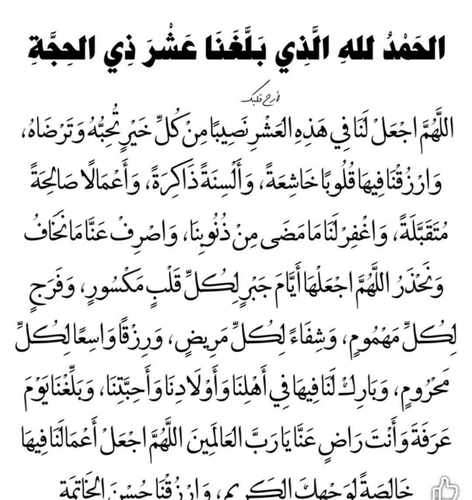 الحَمْدُ للهِ الَّذِي بَلَّغَنَا عَشْرَ ذِي الحِجَّةِ
فرح قلبك
اللَّهُمَّ اجْعَلْ لَنَا فِي هَذِهِ العَشْرِ نَصِيبًا مِنْ كُلِّ خَيْرٍ تُحِبُّهُ وَتَرْضَاهُ،
وَارْزُقْنَا فِيهَا قُلُوبًا خَاشِعَةً، وَأَلْسِنَةً ذَاكِرَةً، وَأَعْمَالًا صَالِحَةً
مُتَقَبَّلَةً، وَاغْفِرْ لَنَا مَا مَضَى مِنْ ذُنُوبِنَا، وَاصْرِفْ عَنَّا مَا نَخَافُ
وَنَحْذَرُ اللَّهُمَّ اجْعَلْهَا أَيَّامَ جَبْرٍ لِكُلِّ قَلْبٍ مَكْسُورٍ، وَفَرَجٍ
لِكُلِّ مَهْمُومٍ، وَشِفَاءً لِكُلِّ مَرِيضٍ، وَرِزْقًا وَاسِعًا لِكُلِّ
مَحْرُومٍ، وَبَارِكْ لَنَا فِيهَا فِي أَهْلِنَا وَأَوْلَادِنَا وَأَحِبَّتِنَا، وَبَلِّغْنَا يَوْمَ
عَرَفَةَ وَأَنْتَ رَاضٍ عَنَّا يَا رَبَّ العَالَمِينَ اللَّهُمَّ اجْعَلْ أَعْمَالَنَا فِيهَا
خَالِصَةً لِوَجْهِكَ الكَرِيمِ، وَارْزُقْنَا حُسْنَ الخَاتِمَةِ